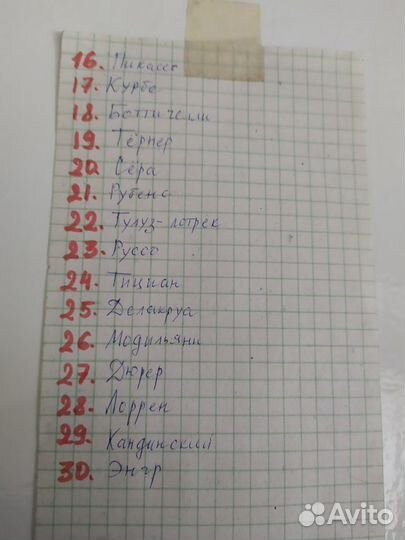 16. Пикассо
17. Курбе
18. Боттичелли
19. Тёрнер
20. Сёра
21. Рубенс
22. Тулуз-лотрек
23. Руссо
24. Тициан
25. Делакруа
26. Модильяни
27. Дюрер
28. Лоррен
29. Кандинский
30. Энгр
Avito